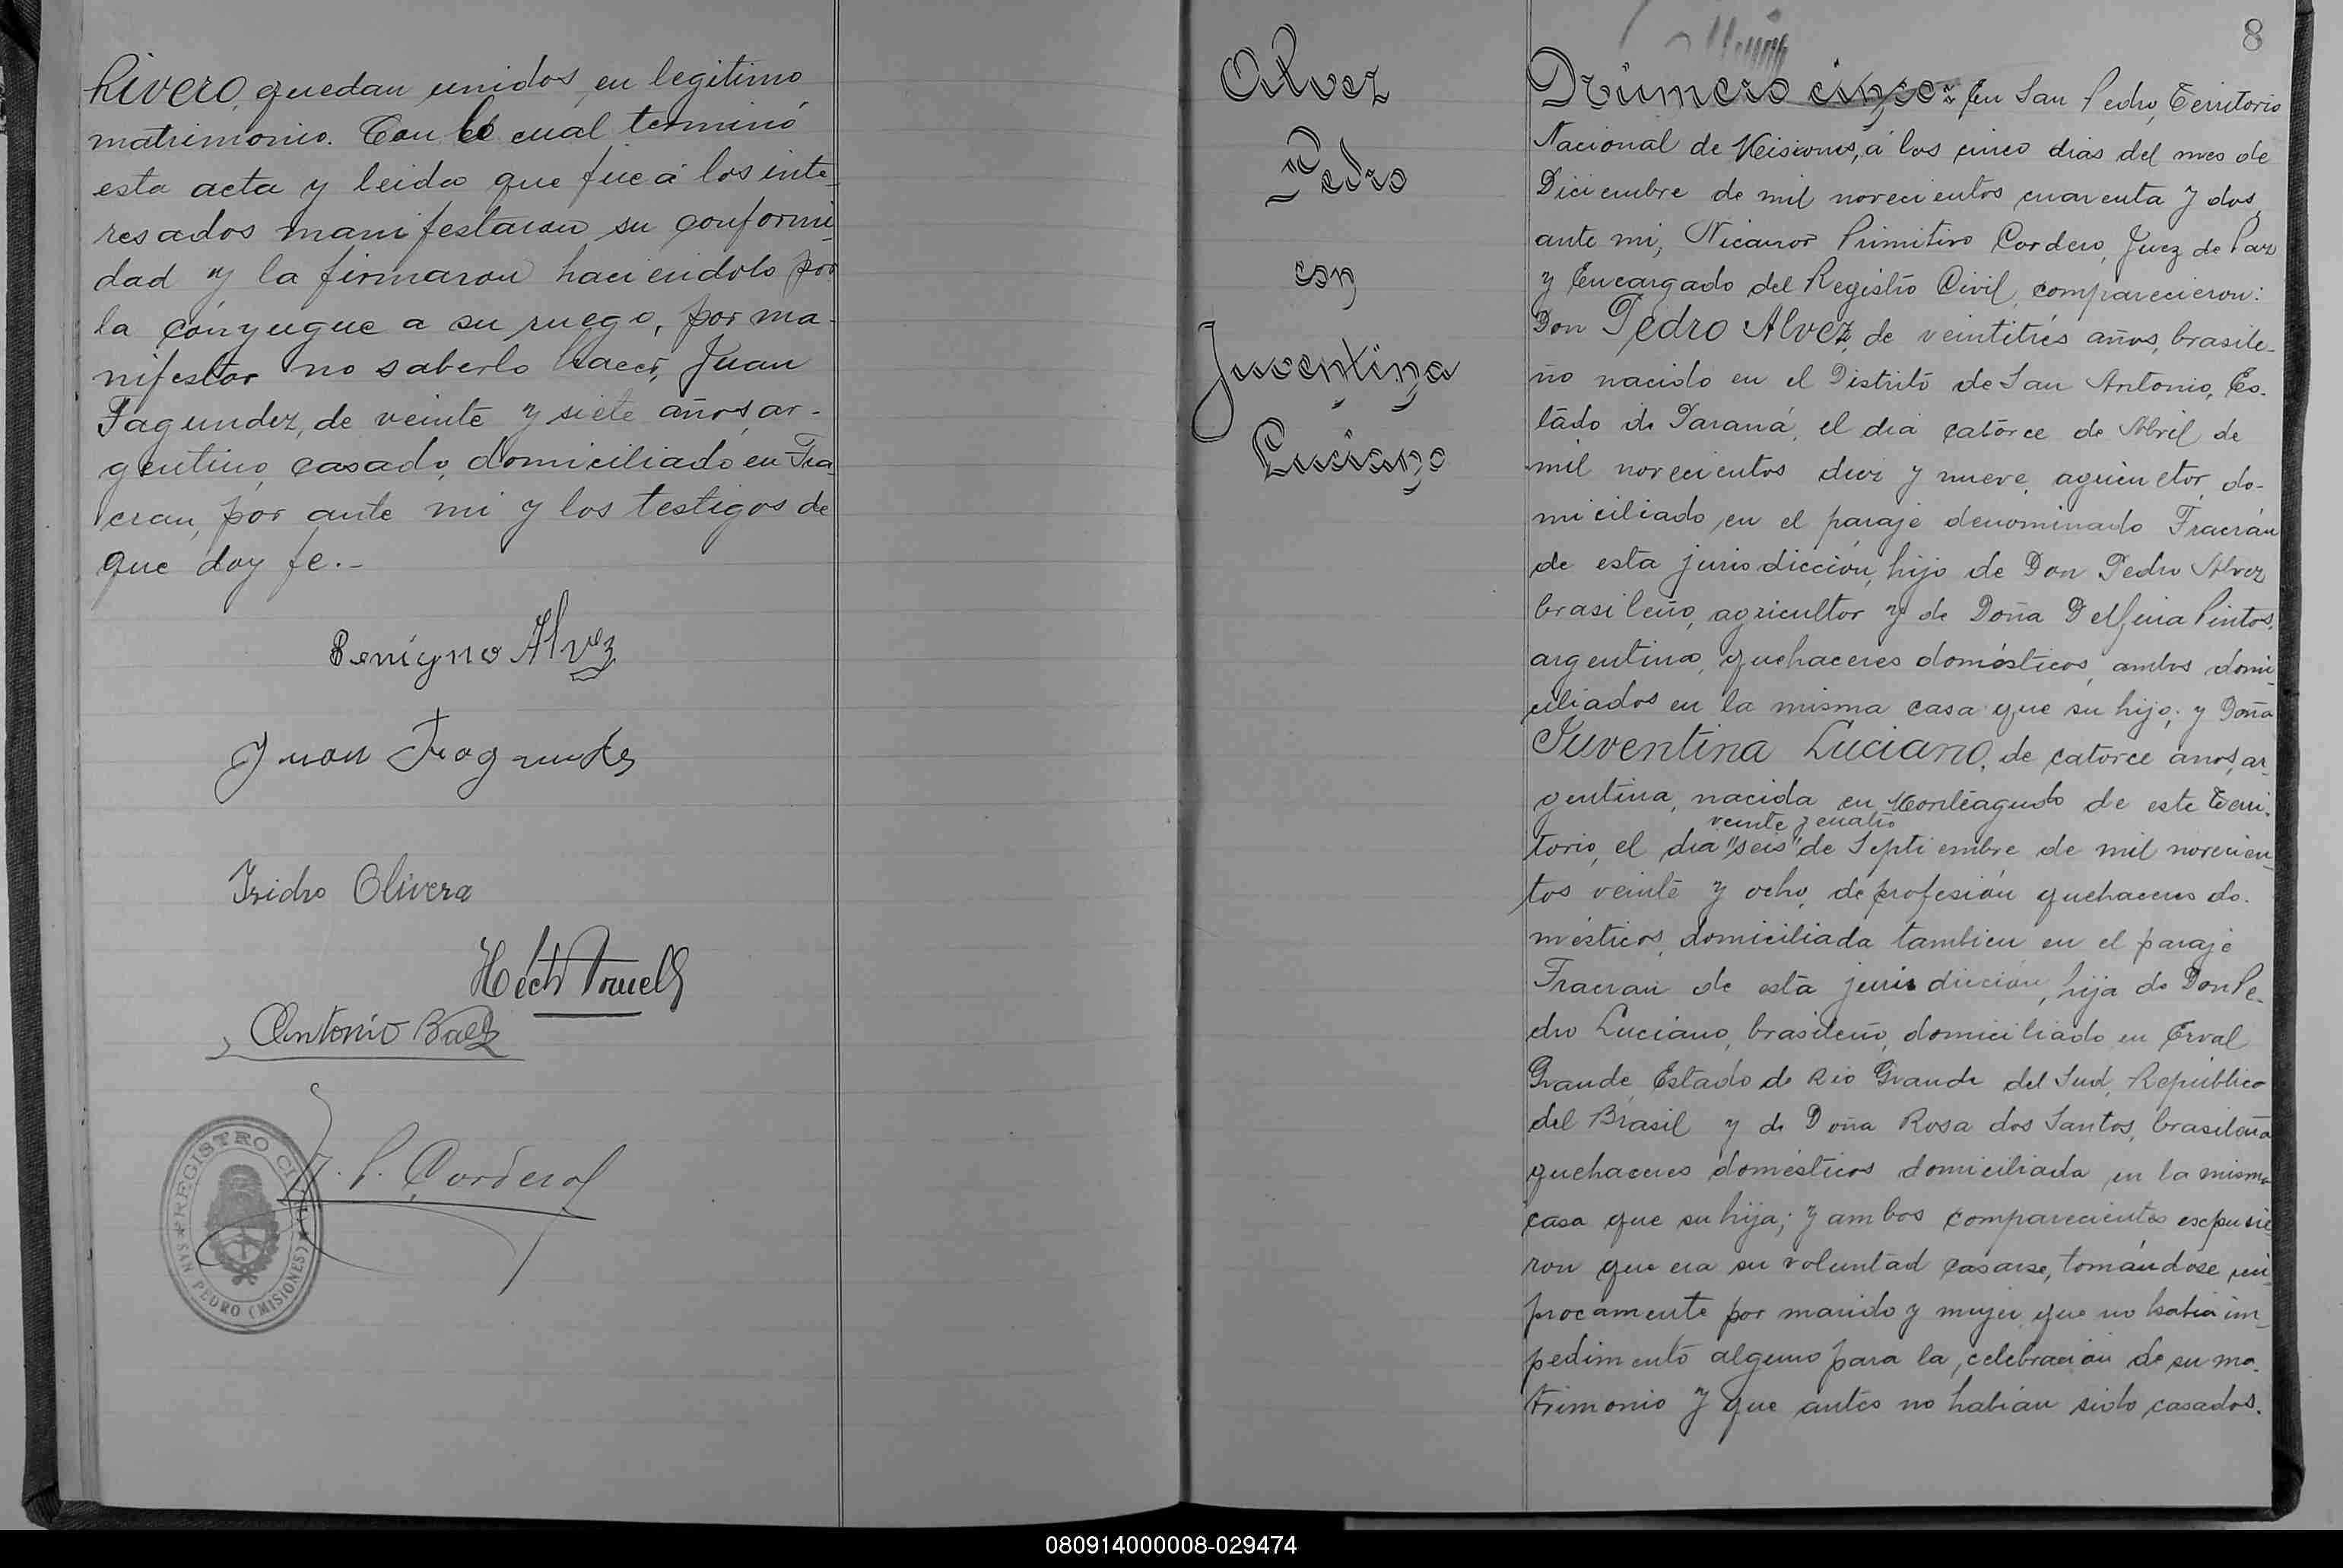 Rivero, quedan unidos en legitimo
matrimonio. Con lo cual terminó
esta acta y leida que fue á los inte-
resados manifestaron su conformi-
dad y la firmaron haciendolo por
la cónyugue a su ruego, por ma-
nifestar no saberlo hacer, Juan
Fagundez, de veinte y siete años, ar-
gentino, casado, domiciliado en Fra-
cran, por ante mi y los testigos de
que doy fe.-
Benigno Alvez
Juan
Isidro Olivera
Antonio Baez
N. P. Cordero
REGISTRO CIVIL
SAN PEDRO (MISIONES)
Alvez
Pedro
con
Juventina
Luciano
8
Número cinco: En San Pedro, Territorio
Nacional de Misiones, á los cinco dias del mes de
Diciembre de mil novecientos cuarenta y dos,
ante mi, Nicanor Primitivo Cordero, Juez de Paz
y Encargado del Registro Civil, comparecieron:
Don Pedro Alvez, de veintitrés años, brasile-
ño nacido en el Distrito de San Antonio, Es-
tado de Paraná, el dia catorce de Abril de
mil novecientos diez y nueve, agricultor, do-
miciliado en el paraje denominado Fracrán
de esta jurisdicción, hijo de Don Pedro Alvez
brasileño, agricultor y de Doña Delfina Pintos,
argentina, quehaceres domésticos, ambos domi-
ciliados en la misma casa que su hijo; y Doña
Juventina Luciano, de catorce años, ar-
gentina, nacida en Monteagudo de este Terri-
veinte y cuatro
torio, el dia "seis" de Septiembre de mil novecien-
tos veinte y ocho, de profesión quehaceres do-
mésticos, domiciliada tambien en el paraje
Fracran de esta jurisdiccion, hija de Don Pe-
dro Luciano, brasileño, domiciliado en Erval
Grande, Estado de Rio Grande del Sud, República
del Brasil y de Doña Rosa dos Santos, brasileña
quehaceres domésticos domiciliada en la misma
casa que su hija; y ambos comparecientes expusie-
ron que era su voluntad casarse, tomándose reci-
procamente por marido y mujer, que no habia im-
pedimento alguno para la celebración de su ma-
trimonio y que antes no habian sido casados.
080914000008-029474